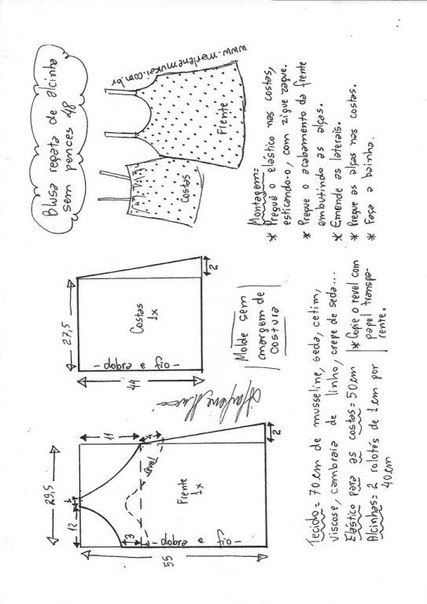 Blusa regata de alcinha
sem pences 48
www.marlenemukai.com.br
Frente
Costas
Montagem=
* Pregue o elástico nas costas,
esticando-o, com zigue zague.
* Pregue o acabamento da frente
embutindo as alças.
* Emende as laterais.
* Pregue as alças nas costas.
* Faça a bainha.
27,5
Costas
1x
- dobra e fio -
44
2
Molde sem
margem de
costura
29,5
12
11
revel
Frente
1x
3
- dobra e fio -
55
2
Tecido = 70cm de musseline, seda, cetim,
viscose, cambraia de linho, crepe de seda...
Elástico para as costas = 50cm
Alcinhas = 2 rolotés de 1cm por
40cm
* Copie o revel com
papel transpa-
rente.